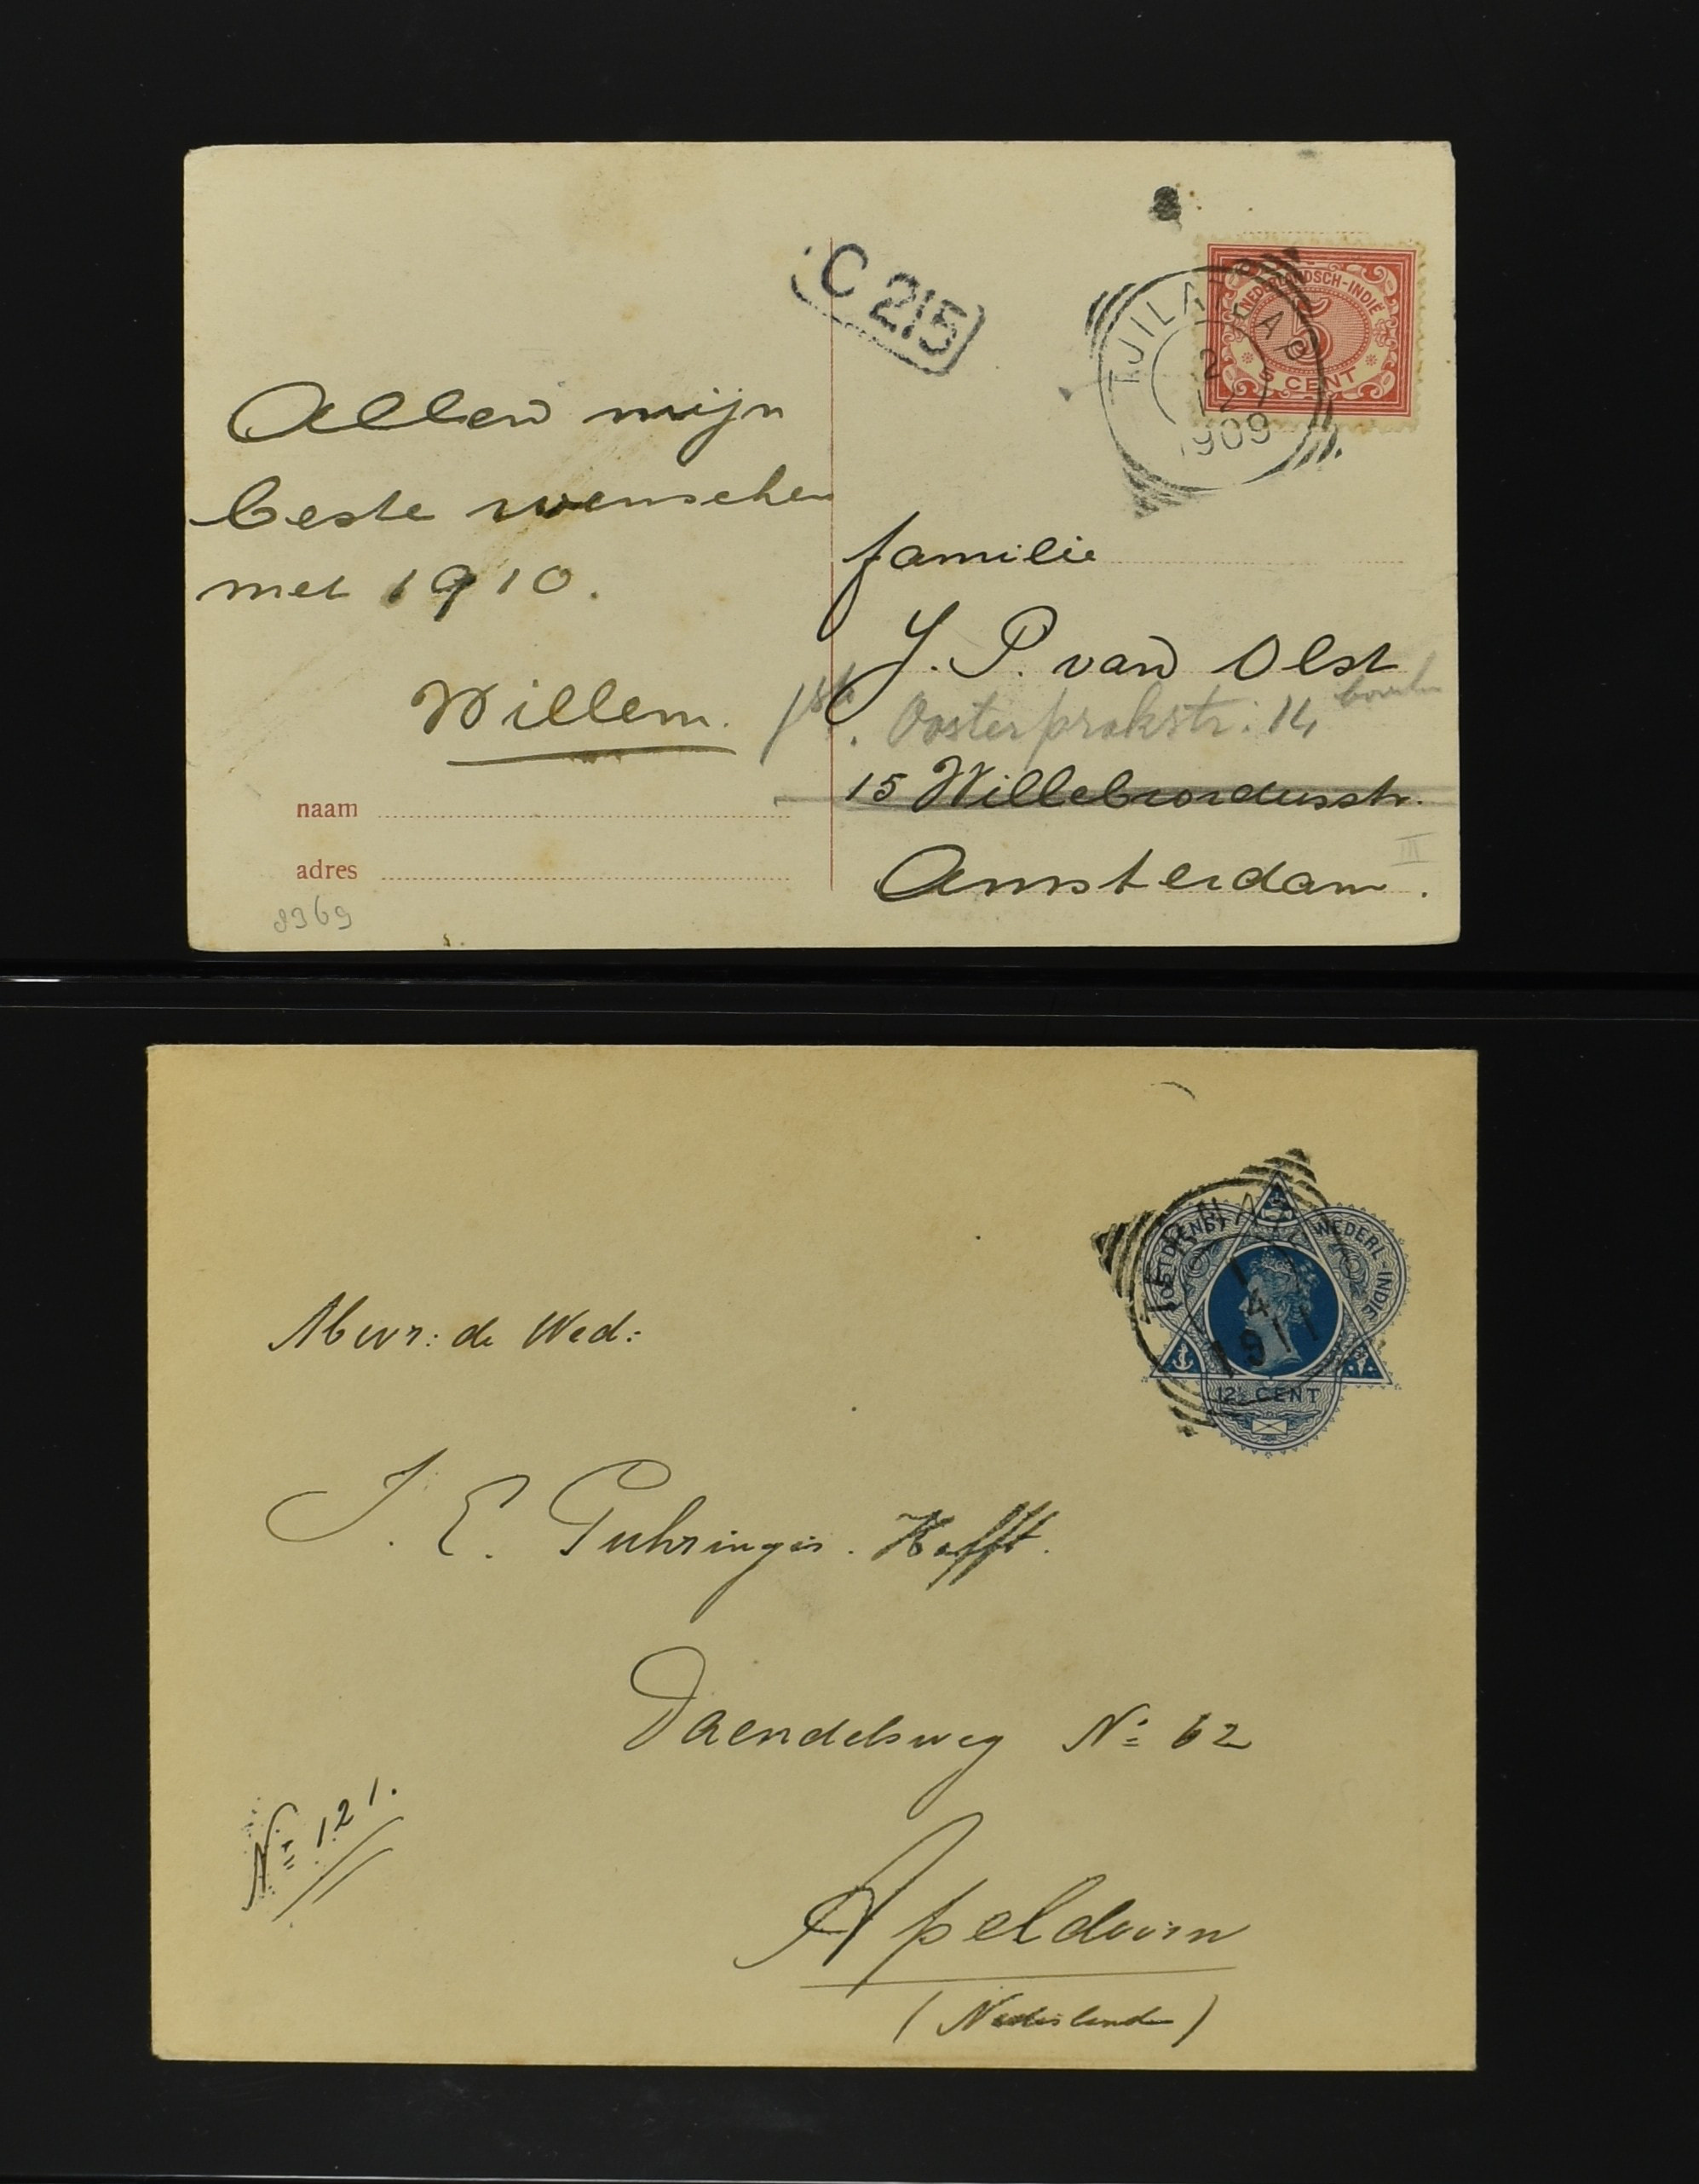 C 215
TJILATJAP
2 5
12
1909
NEDERLANDSCH-INDIË
5
5 CENT
Allen mijn
beste wenschen
met 1910.
Willem.
familie
J. P. van Olst
Oosterparkstr. 14 boven
15 Willebrordusstr.
Amsterdam.
III
naam
adres
8369
POSTDIENST NEDERL-INDIE
1
4
1911
12½ CENT
Mevr: de Wed:
J. E. Guhringer. Hefft.
Daendelsweg No 62
No 121.
Apeldoorn
(Nederland)